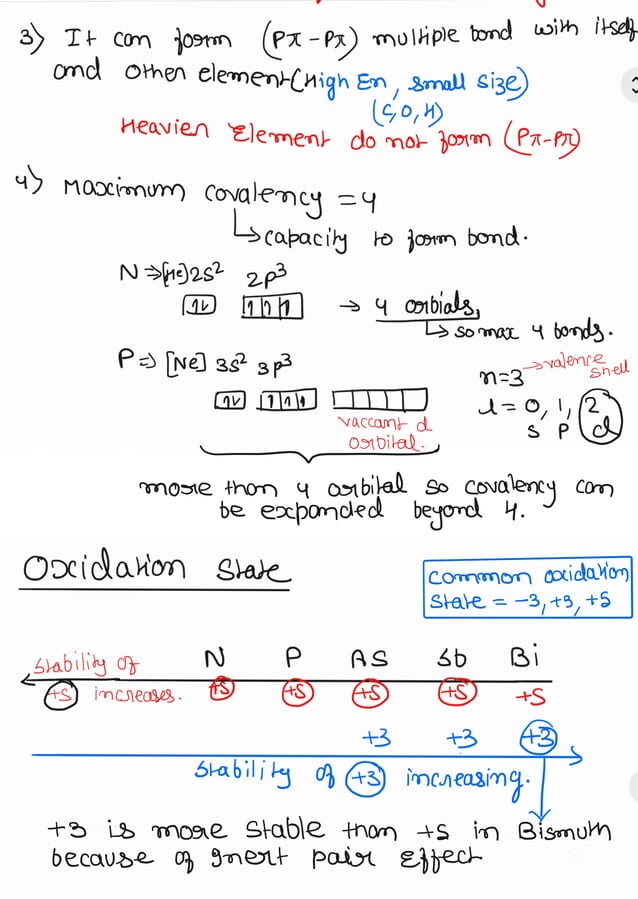 3) It can form (Pπ-Pπ) multiple bond with itself
and other element (High En, small size)
(C,O,N)
Heavier Element do not form (Pπ-Pπ)
4) Maximum covalency = 4
↳ capacity to form bond.
N ⇒ [He] 2s² 2p³
1↓ 1 1 1 → 4 orbials,
↳ so max 4 bonds.
P ⇒ [Ne] 3s² 3p³
n=3 → valence shell
1↓ 1 1 1
l = 0, 1, 2
s p d
vaccant d
orbital.
more than 4 orbital so covalency can
be expanded beyond 4.
Oxidation State
common oxidation
State = -3, +3, +5
Stability of +5 increases.
N P As Sb Bi
+5 +5 +5 +5 +5
+3 +3 +3
Stability of +3 increasing.
+3 is more stable than +5 in Bismuth
because of Inert pair Effect